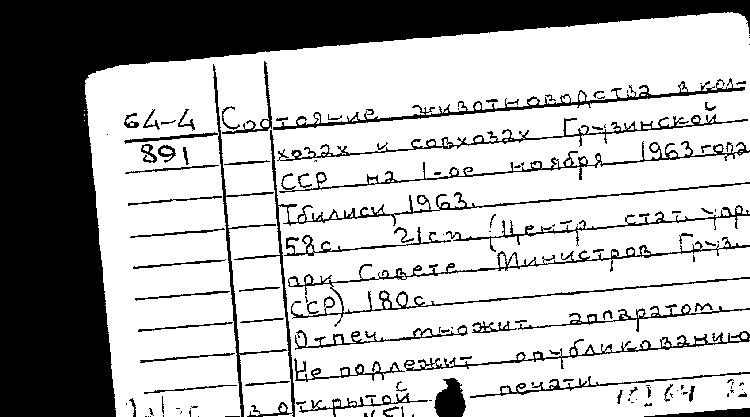 64-4 Состояние животноводства в кол-
891 хозах и совхозах Грузинской
ССР на 1-ое ноября 1963 года
Тбилиси, 1963.
58с. 21см. (Центр. стат. упр.
при Совете Министров Груз.
ССР). 180с.
Отпеч. множит. аппаратом.
Не подлежит опубликованию
в открытой печати.